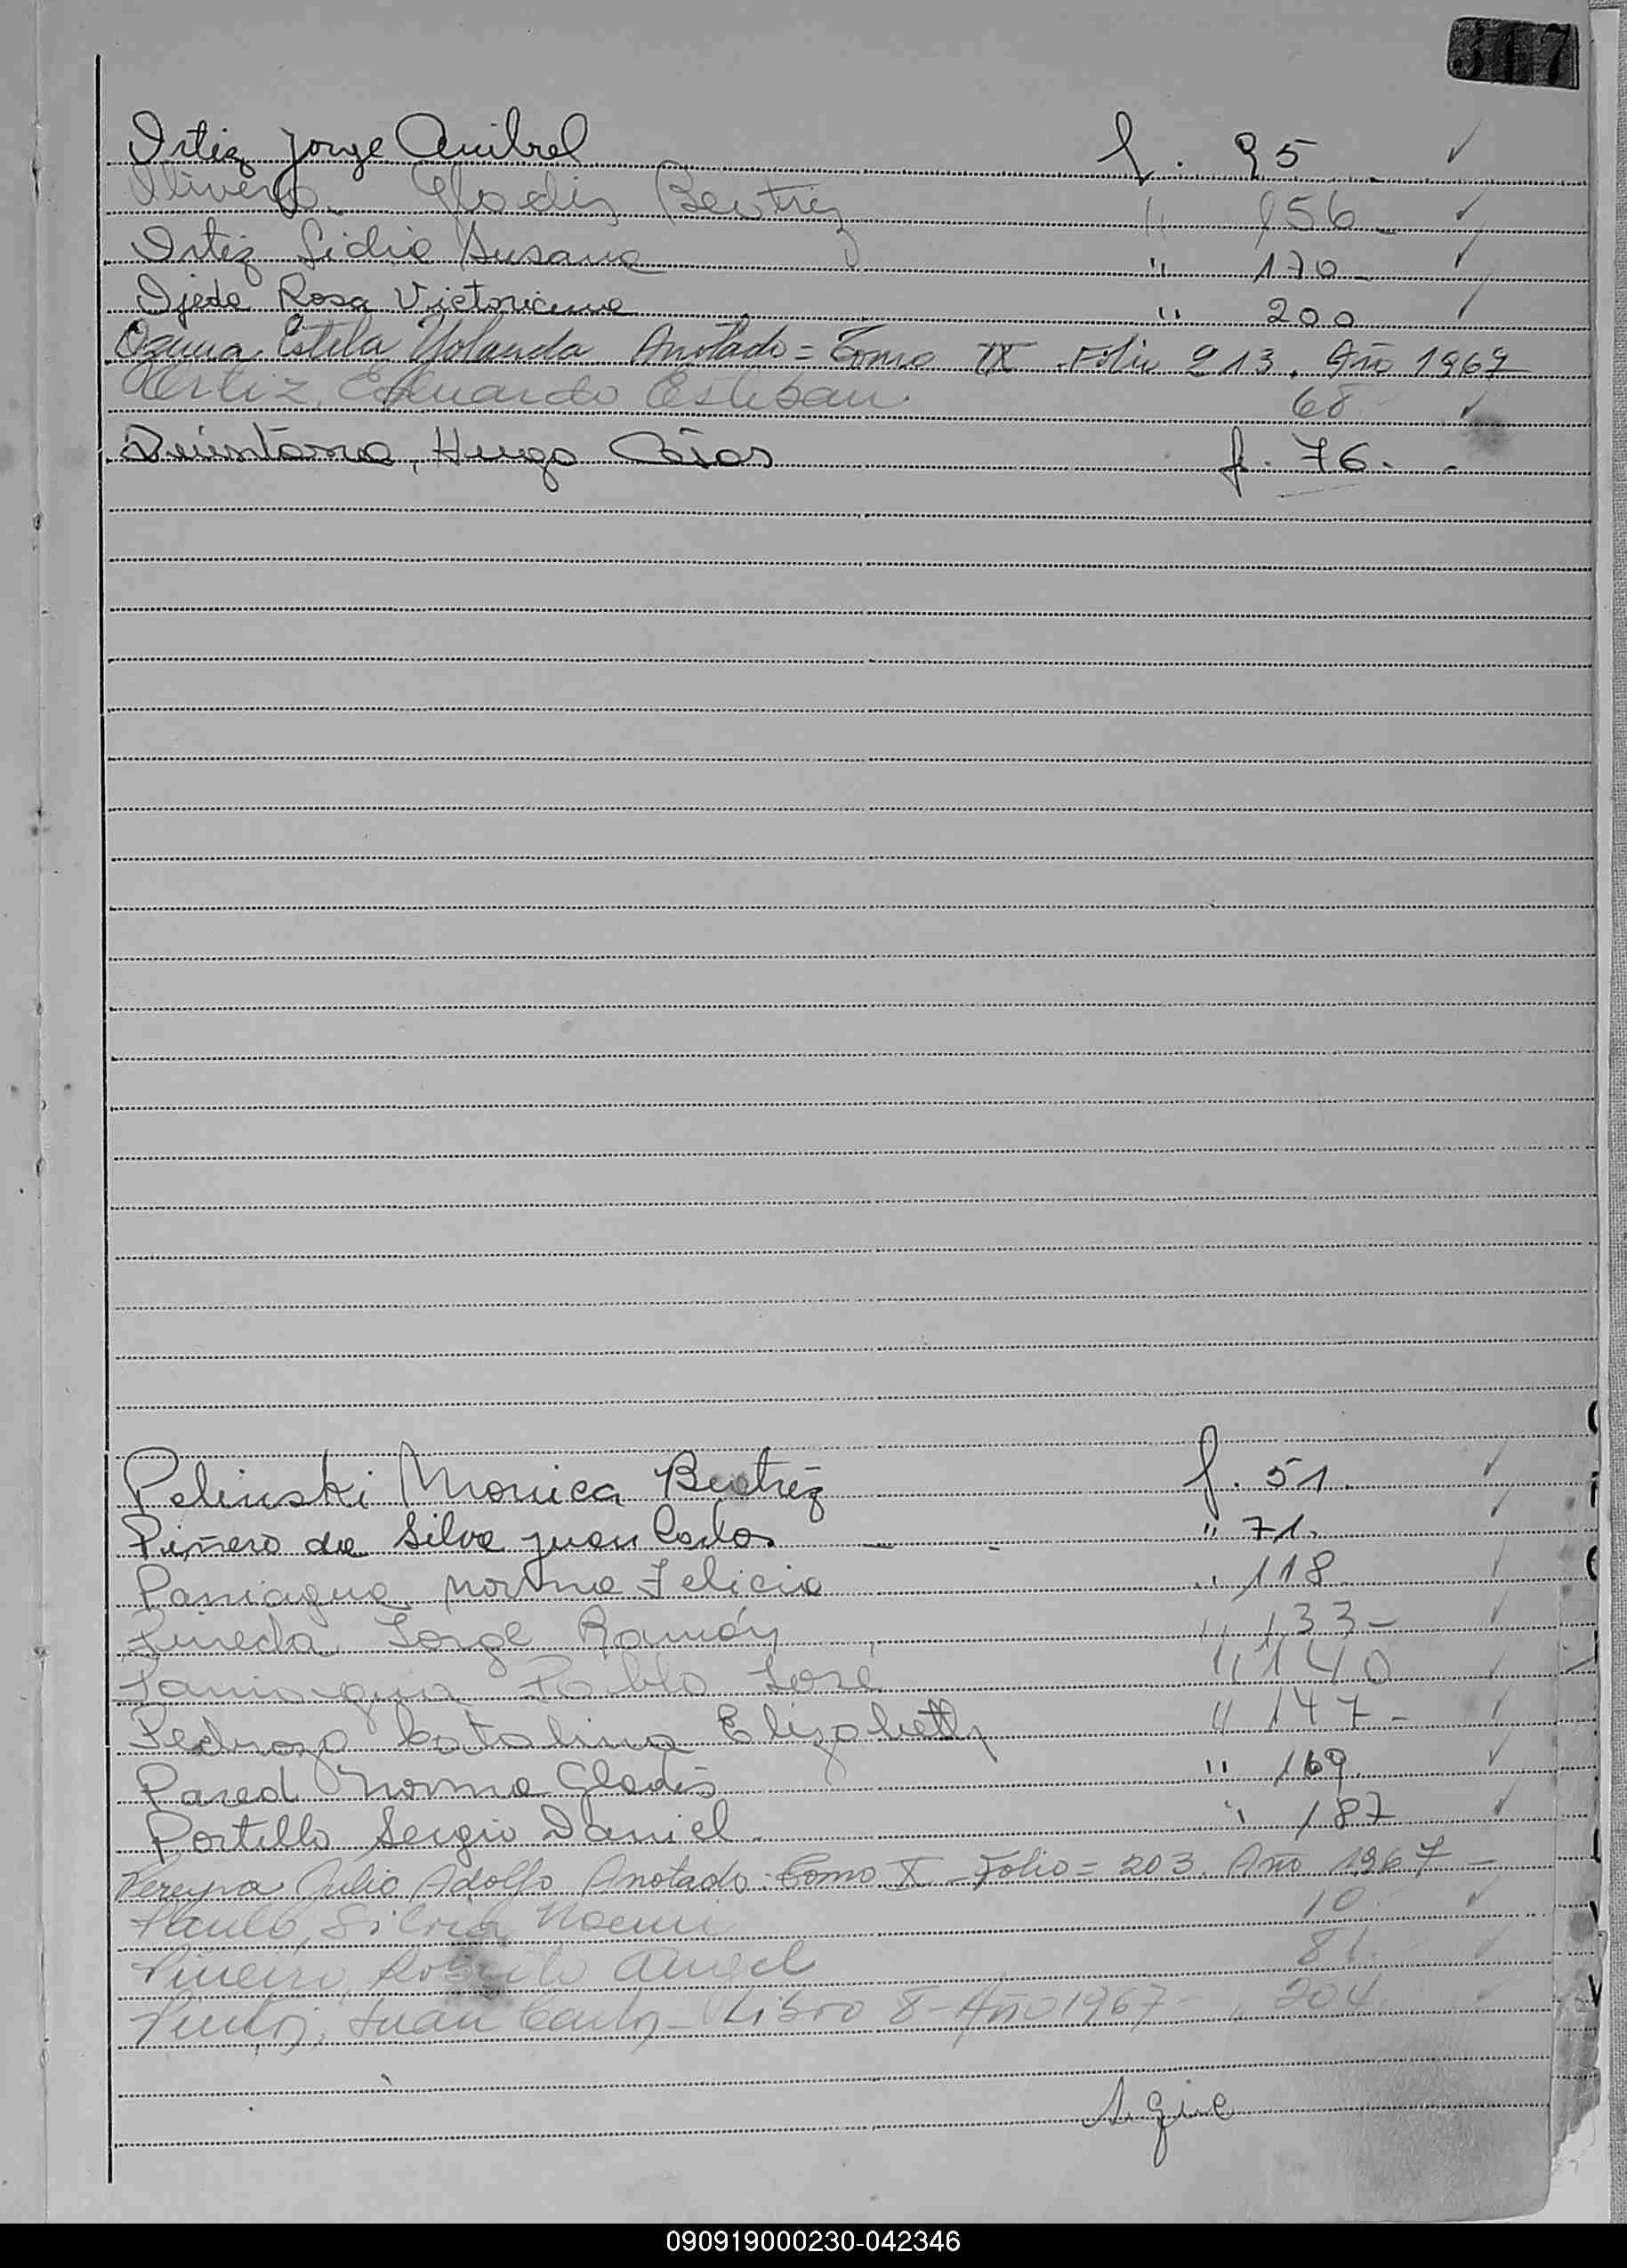 317
Ortiz Jorge Anibal f. 95 ✓
Olivera Gladis Beatriz " 156 - ✓
Ortiz Lidia Susana " 170 - ✓
Ojeda Rosa Victoriana " 200 ✓
Ozuna Estela Yolanda Anotado = Tomo IX - Folio 213. Año 1967
Ortiz, Eduardo Esteban 68 ✓
Quintana, Hugo f. 76. -
Pelinski Monica Beatriz f. 51. ✓
Piñero da Silva Juan Carlos — - " 71. ✓
Paniagua Norma Felicia " 118 ✓
Pineda Jorge Ramón " 133 - ✓
Paniagua Pablo José " 140 ✓
Pedrozo Catalina Elizabeth " 147 - ✓
Pared Norma Gladis " 169. ✓
Portillo Sergio Daniel. " 187 ✓
Pereyra Julio Adolfo Anotado. Tomo X - Folio = 203. Año 1967 -
Paulo, Silvia Noemi 10. ✓
Pineiro, Roberto Angel 81. ✓
Juan Carlos - Libro 8 - Año 1967 - 204 ✓
Sigue
090919000230-042346